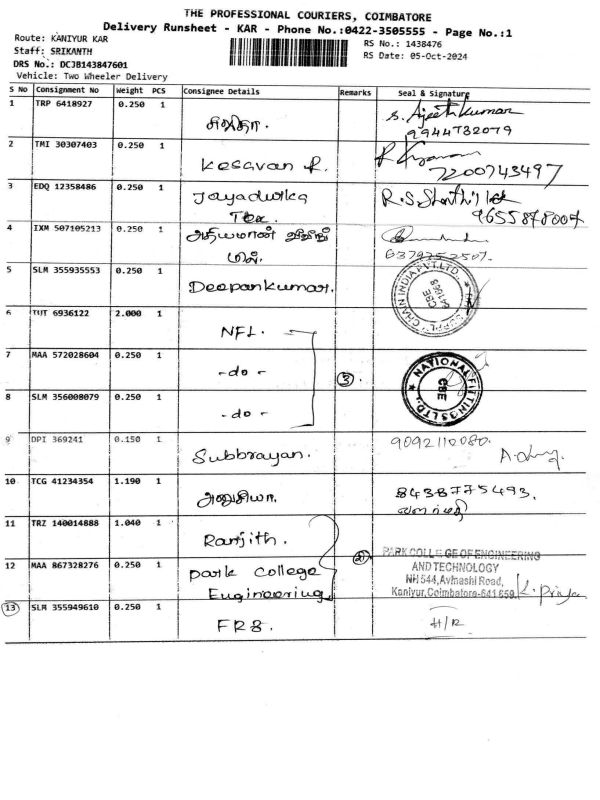 THE PROFESSIONAL COURIERS, COIMBATORE
Delivery Runsheet - KAR - Phone No.:0422-3505555 - Page No.:1
Route: KANIYUR KAR
RS No.: 1438476
Staff: SRIKANTH
RS Date: 05-Oct-2024
DRS No.: DCJB143847601
Vehicle: Two Wheeler Delivery
S No Consignment No Weight PCS Consignee Details Remarks Seal & Signature
1 TRP 6418927 0.250 1 S. Ajeethkumar
9944732079
2 TMI 30307403 0.250 1 Kesavan R.
7200743497
3 EDQ 12358486 0.250 1 Jayadwika R.S.
Tex 9655878007
4 IXM 507105213 0.250 1 அதியமான்
மில். 6379252507.
5 SLM 355935553 0.250 1 Deepankumar.
SUPPLY CHAIN INDIA PVT. LTD. CBE
6 TUT 6936122 2.000 1 NFL.
7 MAA 572028604 0.250 1 -do- 3
NATIONAL FITTINGS LTD. CBE
8 SLM 356008079 0.250 1 -do-
9 DPI 369241 0.150 1 Subbrayan. 9092112080.
10 TCG 41234354 1.190 1 8438775493.
11 TRZ 140014888 1.040 1 Ranjith. 2
PARK COLLEGE OF ENGINEERING
AND TECHNOLOGY
12 MAA 867328276 0.250 1 park college
Engineering
NH 544, Avinashi Road,
Kaniyur, Coimbatore-641 659. K. Priya
13 SLM 355949610 0.250 1 FRB. H/R